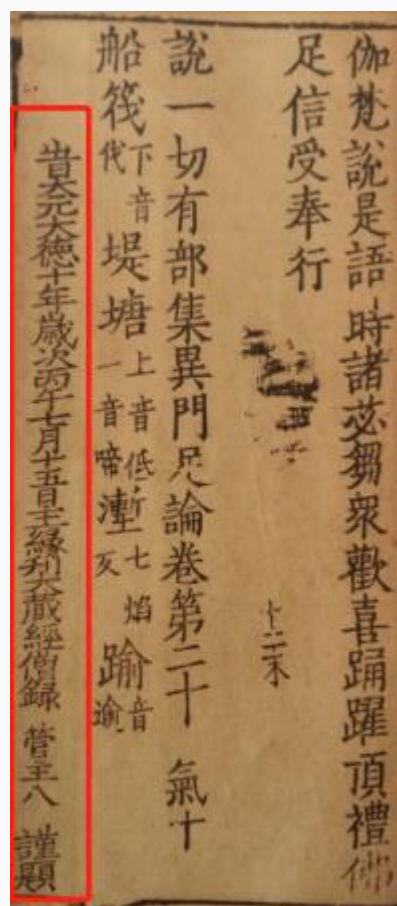 伽梵說是語時諸苾芻衆歡喜踊躍頂禮佛
足信受奉行
說一切有部集異門足論卷第二十 氣十
船筏下音伐 堤塘上音低一音啼 壍七焰反 踰音逾
旹大元大德十年歲次丙午七月十五日主緣刋大藏經僧録 管主八 謹題